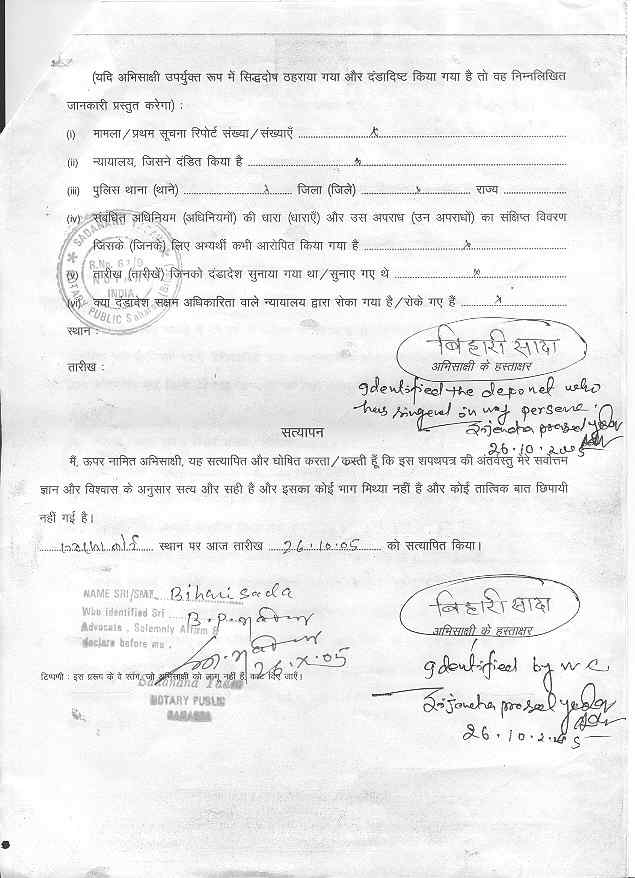 (यदि अभिसाक्षी उपर्युक्त रूप में सिद्धदोष ठहराया गया और दंडादिष्ट किया गया है तो वह निम्नलिखित
जानकारी प्रस्तुत करेगा) :
(i) मामला/प्रथम सूचना रिपोर्ट संख्या/संख्याएँ ........ x ........
(ii) न्यायालय, जिसने दंडित किया है ........ x ........
(iii) पुलिस थाना (थाने) ........ x ........ जिला (जिले) ........ x ........ राज्य ........
(iv) संबंधित अधिनियम (अधिनियमों) की धारा (धाराएँ) और उस अपराध (उन अपराधों) का संक्षिप्त विवरण
जिसके (जिनके) लिए अभ्यर्थी कभी आरोपित किया गया है ........ x ........
(v) तारीख (तारीखें) जिनको दंडादेश सुनाया गया था/सुनाए गए थे ........ x ........
(vi) क्या दंडादेश सक्षम अधिकारिता वाले न्यायालय द्वारा रोका गया है/रोके गए हैं ........ x ........
SADANAND
R.No.
INDIA
NOTARY PUBLIC
स्थान :
बिहारी सादा
अभिसाक्षी के हस्ताक्षर
तारीख :
Identified the deponet who
has singend in my persene.
26.10.2005
सत्यापन
मैं, ऊपर नामित अभिसाक्षी, यह सत्यापित और घोषित करता/करती हूँ कि इस शपथपत्र की अंतर्वस्तु मेरे सर्वोत्तम
ज्ञान और विश्वास के अनुसार सत्य और सही है और इसका कोई भाग मिथ्या नहीं है और कोई तात्विक बात छिपायी
नहीं गई है।
स्थान पर आज तारीख 26.10.05 को सत्यापित किया।
NAME SRI/SMT. Bihari sada
Who identified Sri
Advocate, Solemnly Affirm &
declare before me.
26.X.05
बिहारी सादा
अभिसाक्षी के हस्ताक्षर
Identified by me
26.10.2005
टिप्पणी : इस प्ररूप के वे स्तंभ, जो अभिसाक्षी को लागू नहीं हैं, काट दिए जाएँ।
Sadanand Yadav
NOTARY PUBLIC
SAHARSA